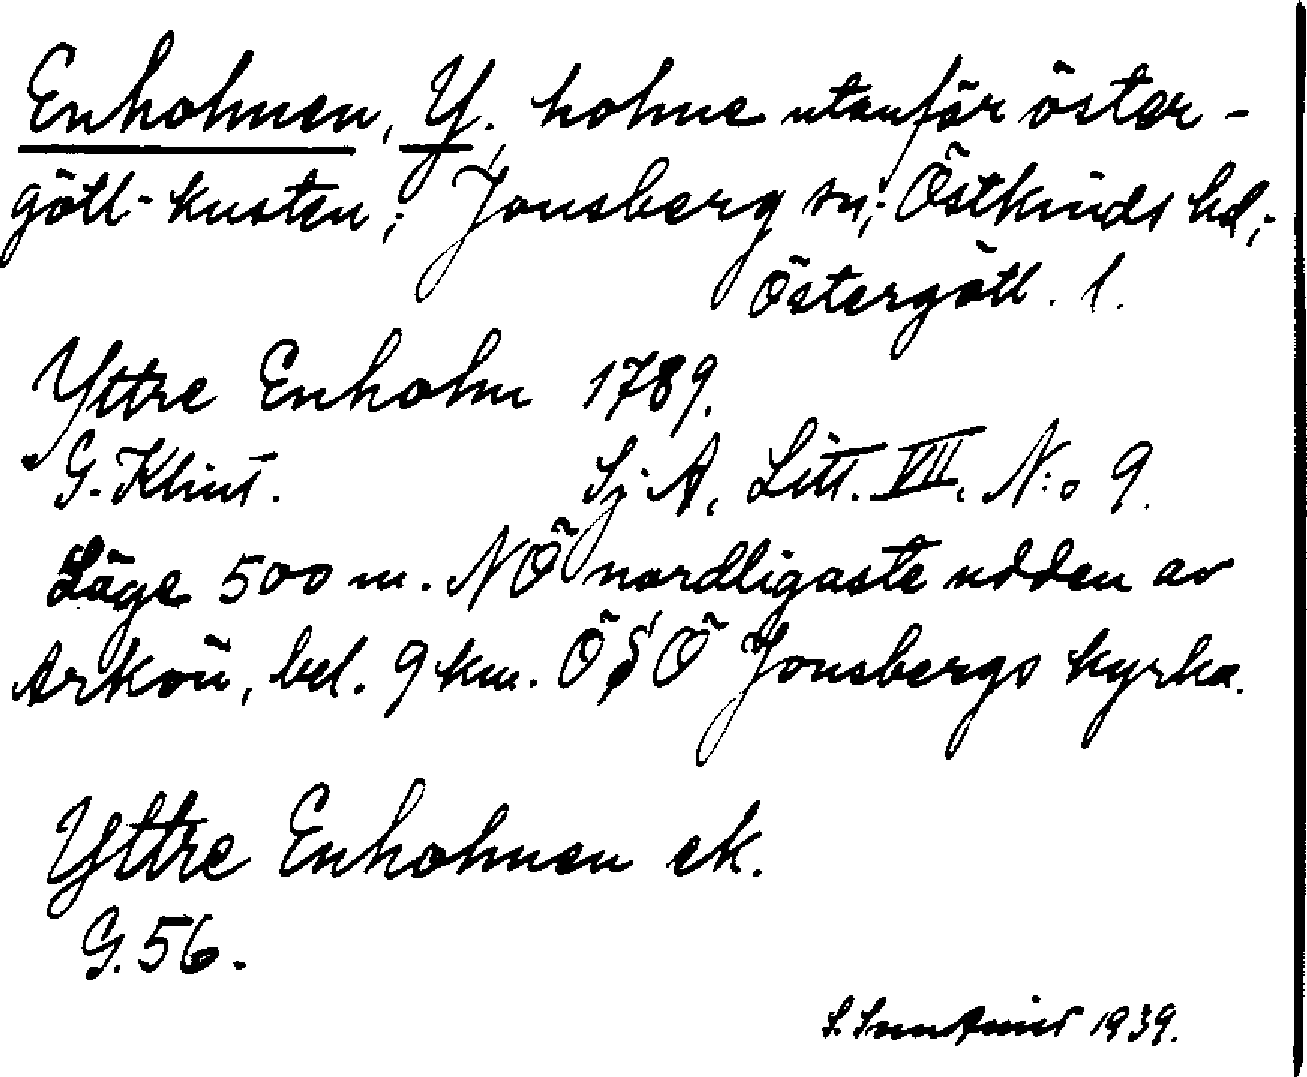 Enholmen, Y. holme utanför öster-
götl-kusten; Jonsberg sn; Östkinds hd;
Östergötl. l.
Yttre Enholm 1789.
G. Klint. Sj. A, Litt. VIII. N:o 9.
Läge 500 m. NÖ nordligaste udden av
Arkön, bel. 9 km. ÖSÖ Jonsbergs kyrka.
Yttre Enholmen ek.
G. 56.
S. 1939.